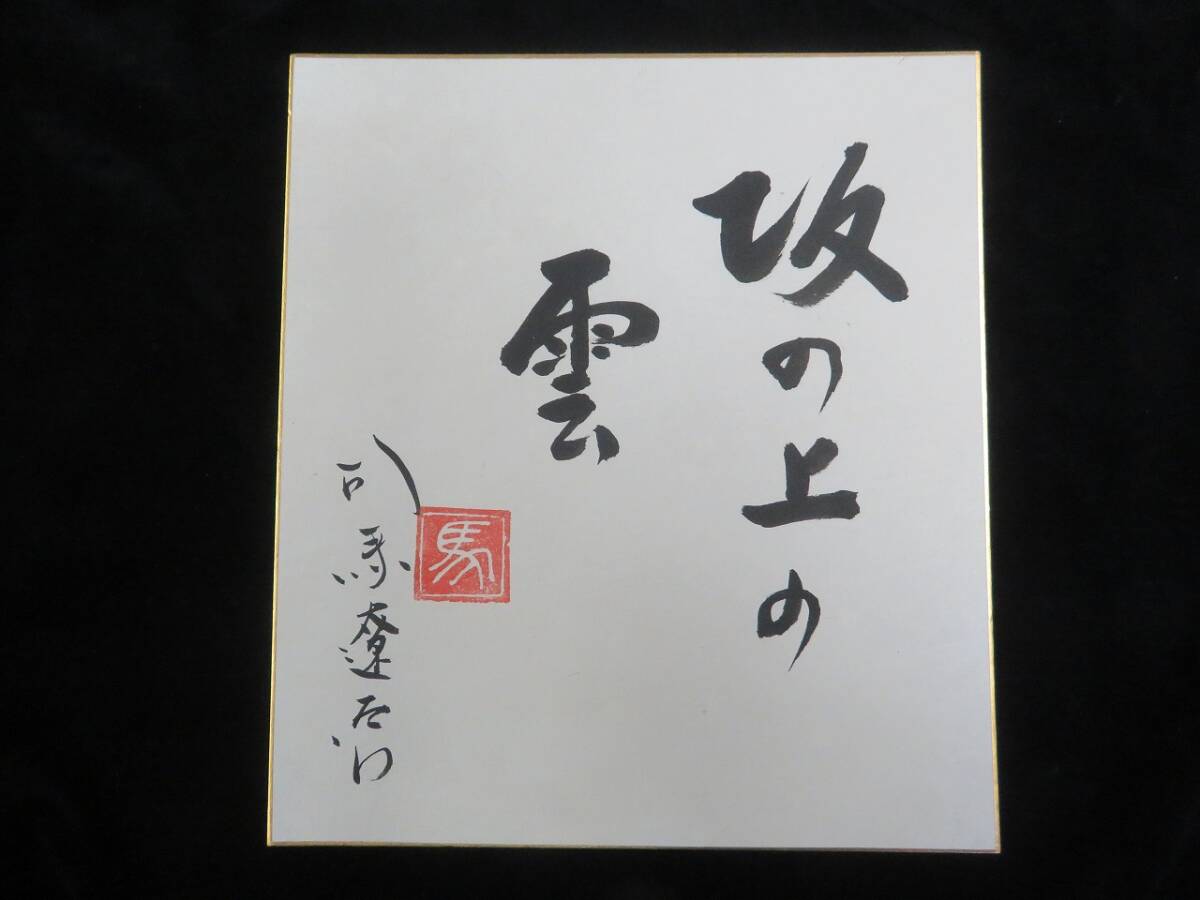 坂の上の
雲
司馬遼太郎
馬